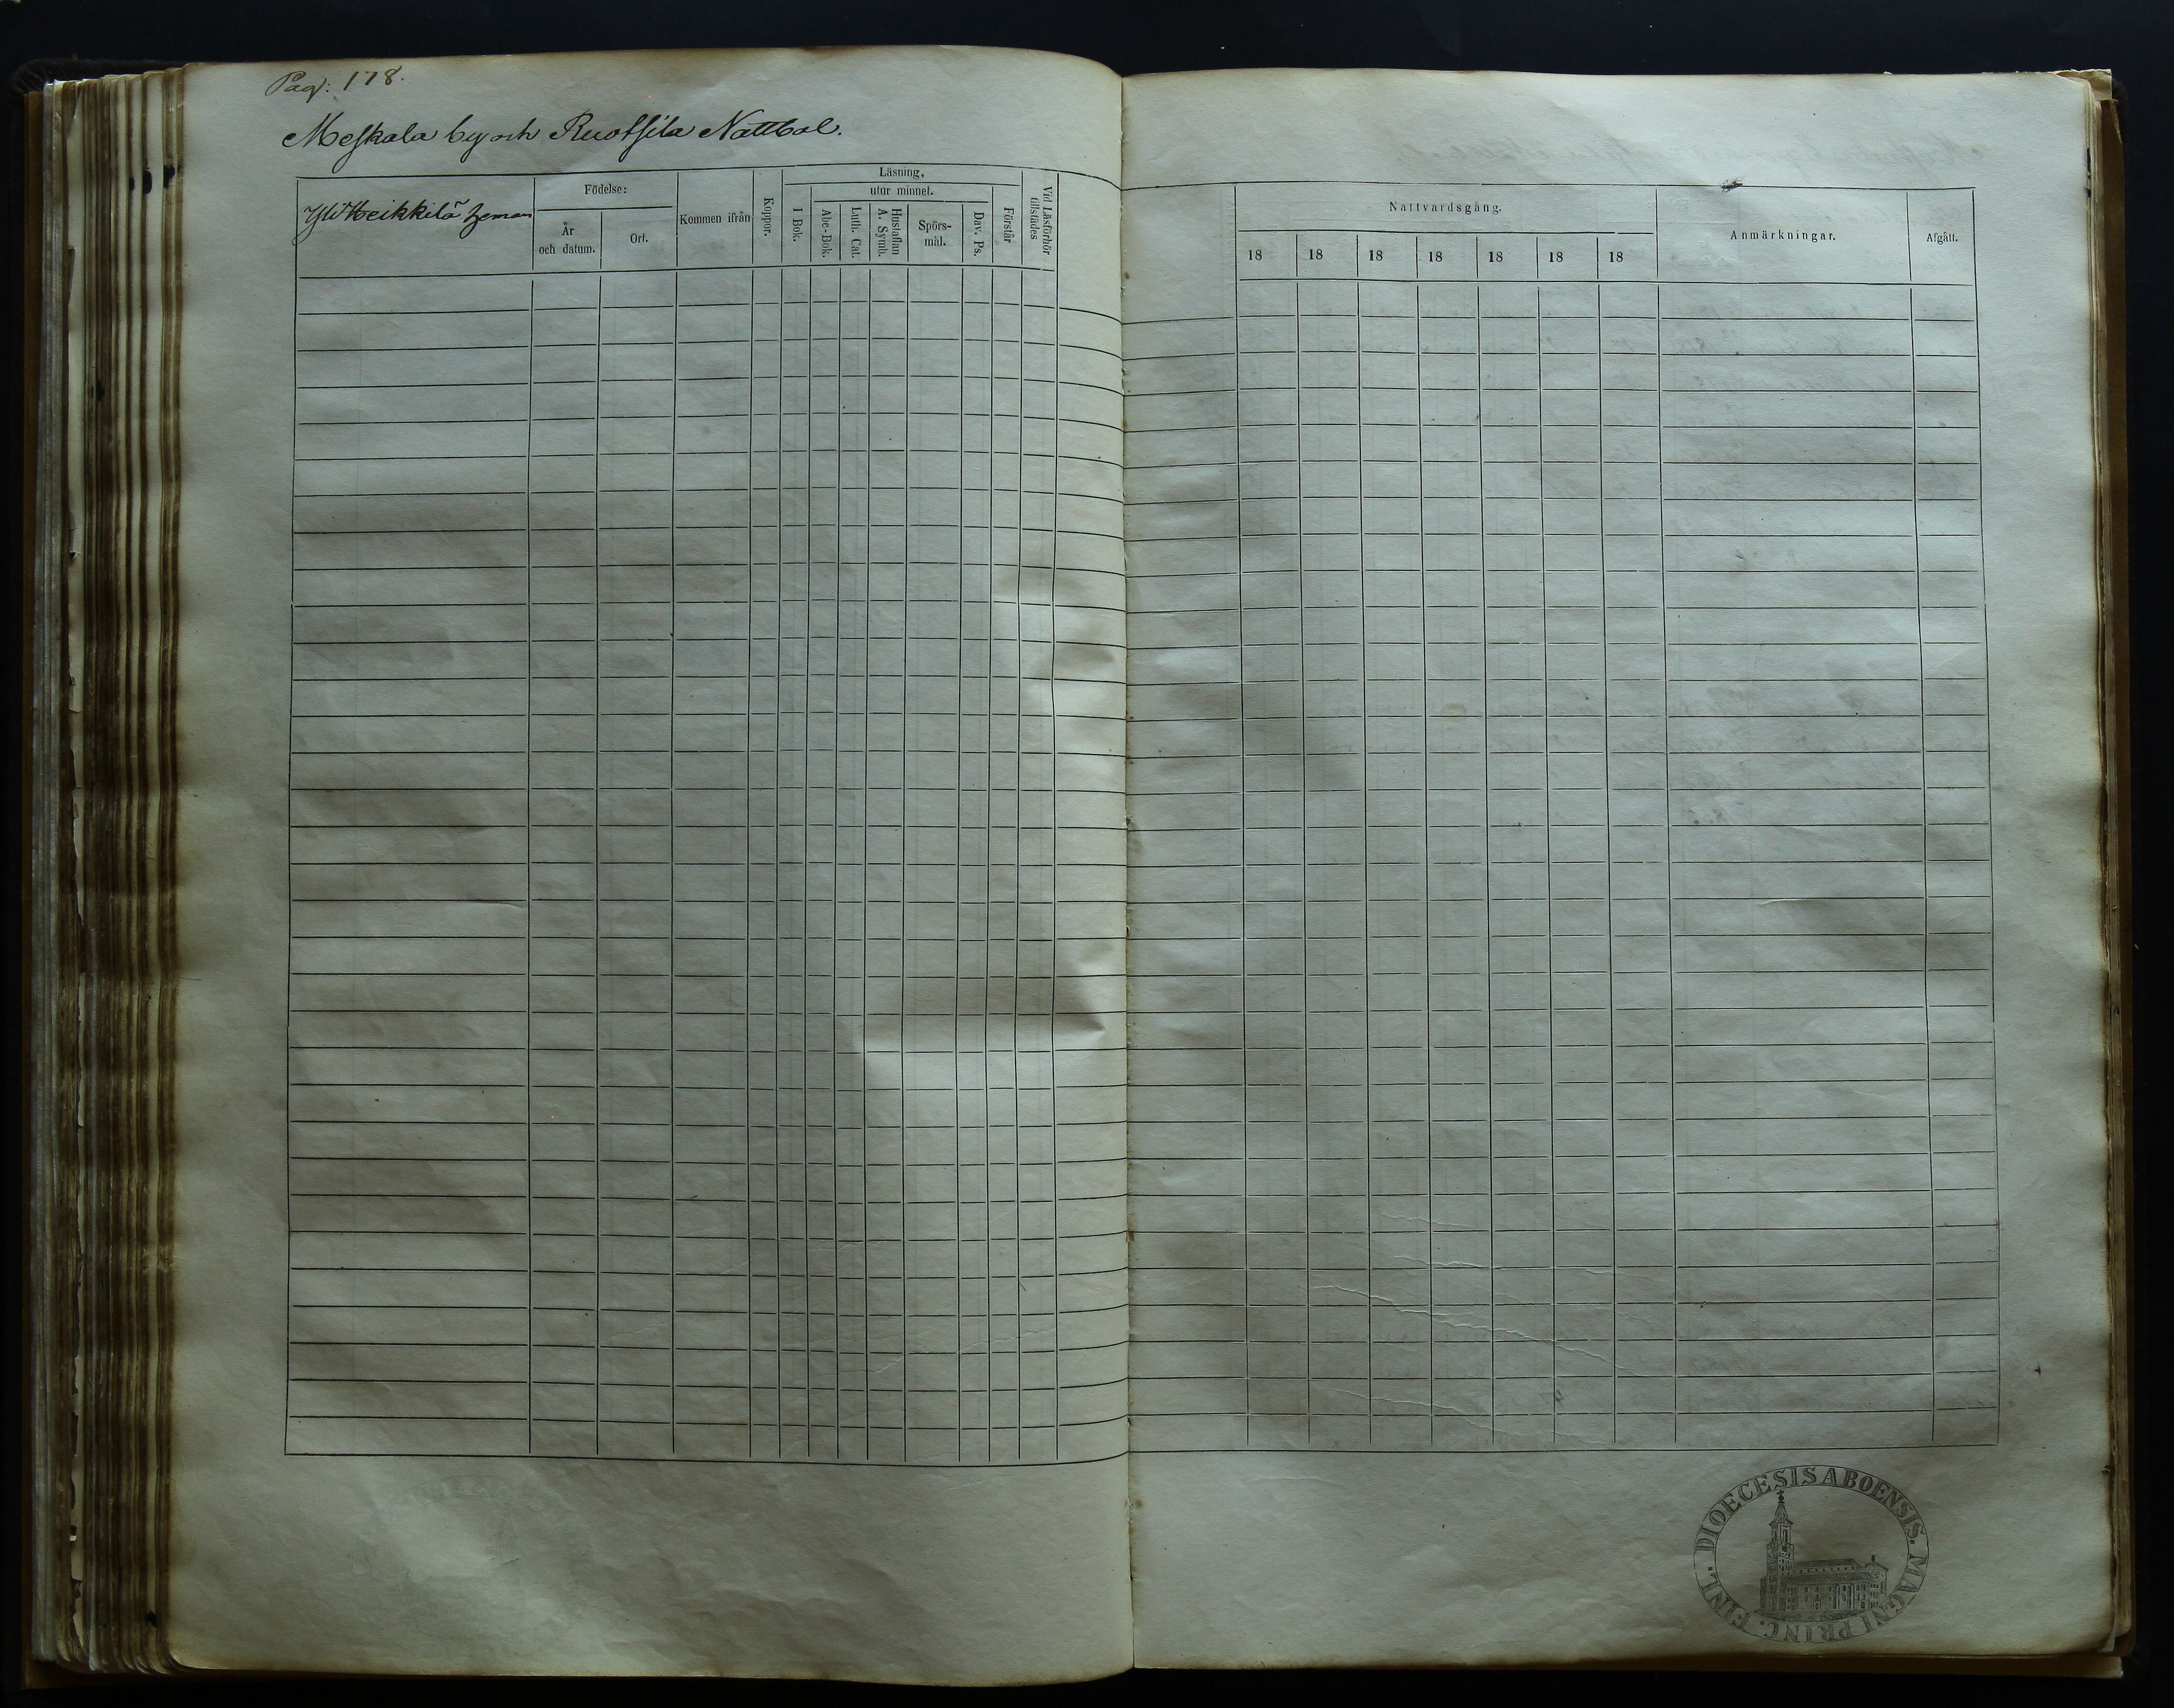 Pag: 178.
Meskala by och Ruotsila Nattbol.
YliHeikkilä hemman
Födelse:
År och datum.
Ort.
Kommen ifrån
Koppor.
Läsning,
utur minnet.
I Bok.
Abc-Bok.
Luth. Cat.
Hustaflan A. Symb.
Spörs-
mål.
Dav. Ps.
Förstår
Vid Läsförhör tillstädes
Nattvardsgång.
18 18 18 18 18 18 18
Anmärkningar.
Afgått.
DIOECESIS ABOENSIS. MAGNI PRINC. FINL.